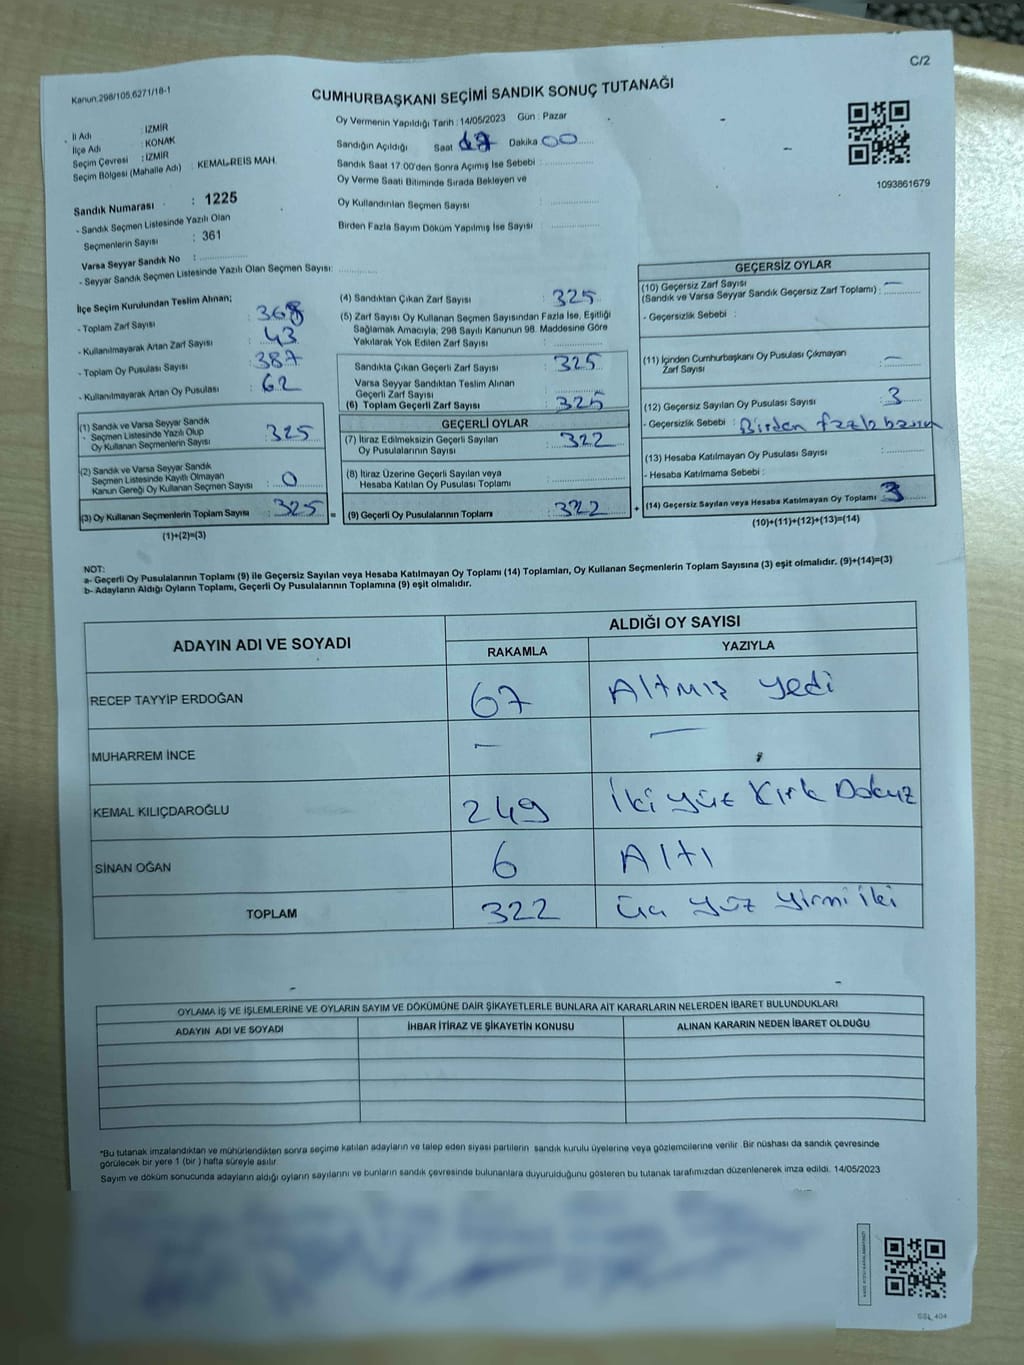 C/2
Kanun.298/105,6271/18-1
CUMHURBAŞKANI SEÇİMİ SANDIK SONUÇ TUTANAĞI
İl Adı : İZMİR
İlçe Adı : KONAK
Seçim Çevresi : İZMİR
Seçim Bölgesi (Mahalle Adı) : KEMAL REİS MAH.
Oy Vermenin Yapıldığı Tarih : 14/05/2023 Gün : Pazar
Sandığın Açıldığı Saat 17 Dakika 00
Sandık Saat 17:00'den Sonra Açımış İse Sebebi :
Oy Verme Saati Bitiminde Sırada Bekleyen ve
Oy Kullandırılan Seçmen Sayısı :
Birden Fazla Sayım Döküm Yapılmış İse Sayısı :
1093861679
Sandık Numarası : 1225
- Sandık Seçmen Listesinde Yazılı Olan
Seçmenlerin Sayısı : 361
Varsa Seyyar Sandık No :
- Seyyar Sandık Seçmen Listesinde Yazılı Olan Seçmen Sayısı:
İlçe Seçim Kurulundan Teslim Alınan;
- Toplam Zarf Sayısı : 368
- Kullanılmayarak Artan Zarf Sayısı : 43
- Toplam Oy Pusulası Sayısı : 387
- Kullanılmayarak Artan Oy Pusulası : 62
(1) Sandık ve Varsa Seyyar Sandık
- Seçmen Listesinde Yazılı Olup
Oy Kullanan Seçmenlerin Sayısı : 325
(2) Sandık ve Varsa Seyyar Sandık
Seçmen Listesinde Kayıtlı Olmayan
Kanun Gereği Oy Kullanan Seçmen Sayısı : 0
(3) Oy Kullanan Seçmenlerin Toplam Sayısı : 325
(1)+(2)=(3)
(4) Sandıktan Çıkan Zarf Sayısı : 325
(5) Zarf Sayısı Oy Kullanan Seçmen Sayısından Fazla İse, Eşitliği
Sağlamak Amacıyla, 298 Sayılı Kanunun 98. Maddesine Göre
Yakılarak Yok Edilen Zarf Sayısı :
Sandıkta Çıkan Geçerli Zarf Sayısı : 325
Varsa Seyyar Sandıktan Teslim Alınan
Geçerli Zarf Sayısı :
(6) Toplam Geçerli Zarf Sayısı : 325
GEÇERLİ OYLAR
(7) İtiraz Edilmeksizin Geçerli Sayılan
Oy Pusulalarının Sayısı : 322
(8) İtiraz Üzerine Geçerli Sayılan veya
Hesaba Katılan Oy Pusulası Toplamı :
= (9) Geçerli Oy Pusulalarının Toplamı : 322
GEÇERSİZ OYLAR
(10) Geçersiz Zarf Sayısı
(Sandık ve Varsa Seyyar Sandık Geçersiz Zarf Toplamı) : —
- Geçersizlik Sebebi :
(11) İçinden Cumhurbaşkanı Oy Pusulası Çıkmayan
Zarf Sayısı : —
(12) Geçersiz Sayılan Oy Pusulası Sayısı : 3
- Geçersizlik Sebebi : Birden fazla basım
(13) Hesaba Katılmayan Oy Pusulası Sayısı :
- Hesaba Katılmama Sebebi :
+ (14) Geçersiz Sayılan veya Hesaba Katılmayan Oy Toplamı : 3
(10)+(11)+(12)+(13)=(14)
NOT:
a- Geçerli Oy Pusulalarının Toplamı (9) ile Geçersiz Sayılan veya Hesaba Katılmayan Oy Toplamı (14) Toplamları, Oy Kullanan Seçmenlerin Toplam Sayısına (3) eşit olmalıdır. (9)+(14)=(3)
b- Adayların Aldığı Oyların Toplamı, Geçerli Oy Pusulalarının Toplamına (9) eşit olmalıdır.
ADAYIN ADI VE SOYADI ALDIĞI OY SAYISI
RAKAMLA YAZIYLA
RECEP TAYYİP ERDOĞAN 67 Altmış yedi
MUHARREM İNCE — —
KEMAL KILIÇDAROĞLU 249 İki yüz Kırk Dokuz
SİNAN OĞAN 6 Altı
TOPLAM 322 Üç yüz yirmi iki
OYLAMA İŞ VE İŞLEMLERİNE VE OYLARIN SAYIM VE DÖKÜMÜNE DAİR ŞİKAYETLERLE BUNLARA AİT KARARLARIN NELERDEN İBARET BULUNDUKLARI
ADAYIN ADI VE SOYADI İHBAR İTİRAZ VE ŞİKAYETİN KONUSU ALINAN KARARIN NEDEN İBARET OLDUĞU
*Bu tutanak imzalandıktan ve mühürlendikten sonra seçime katılan adayların ve talep eden siyasi partilerin sandık kurulu üyelerine veya gözlemcilerine verilir. Bir nüshası da sandık çevresinde
görülecek bir yere 1 (bir ) hafta süreyle asılır.
Sayım ve döküm sonucunda adayların aldığı oyların sayılarını ve bunların sandık çevresinde bulunanlara duyurulduğunu gösteren bu tutanak tarafımızdan düzenlenerek imza edildi. 14/05/2023